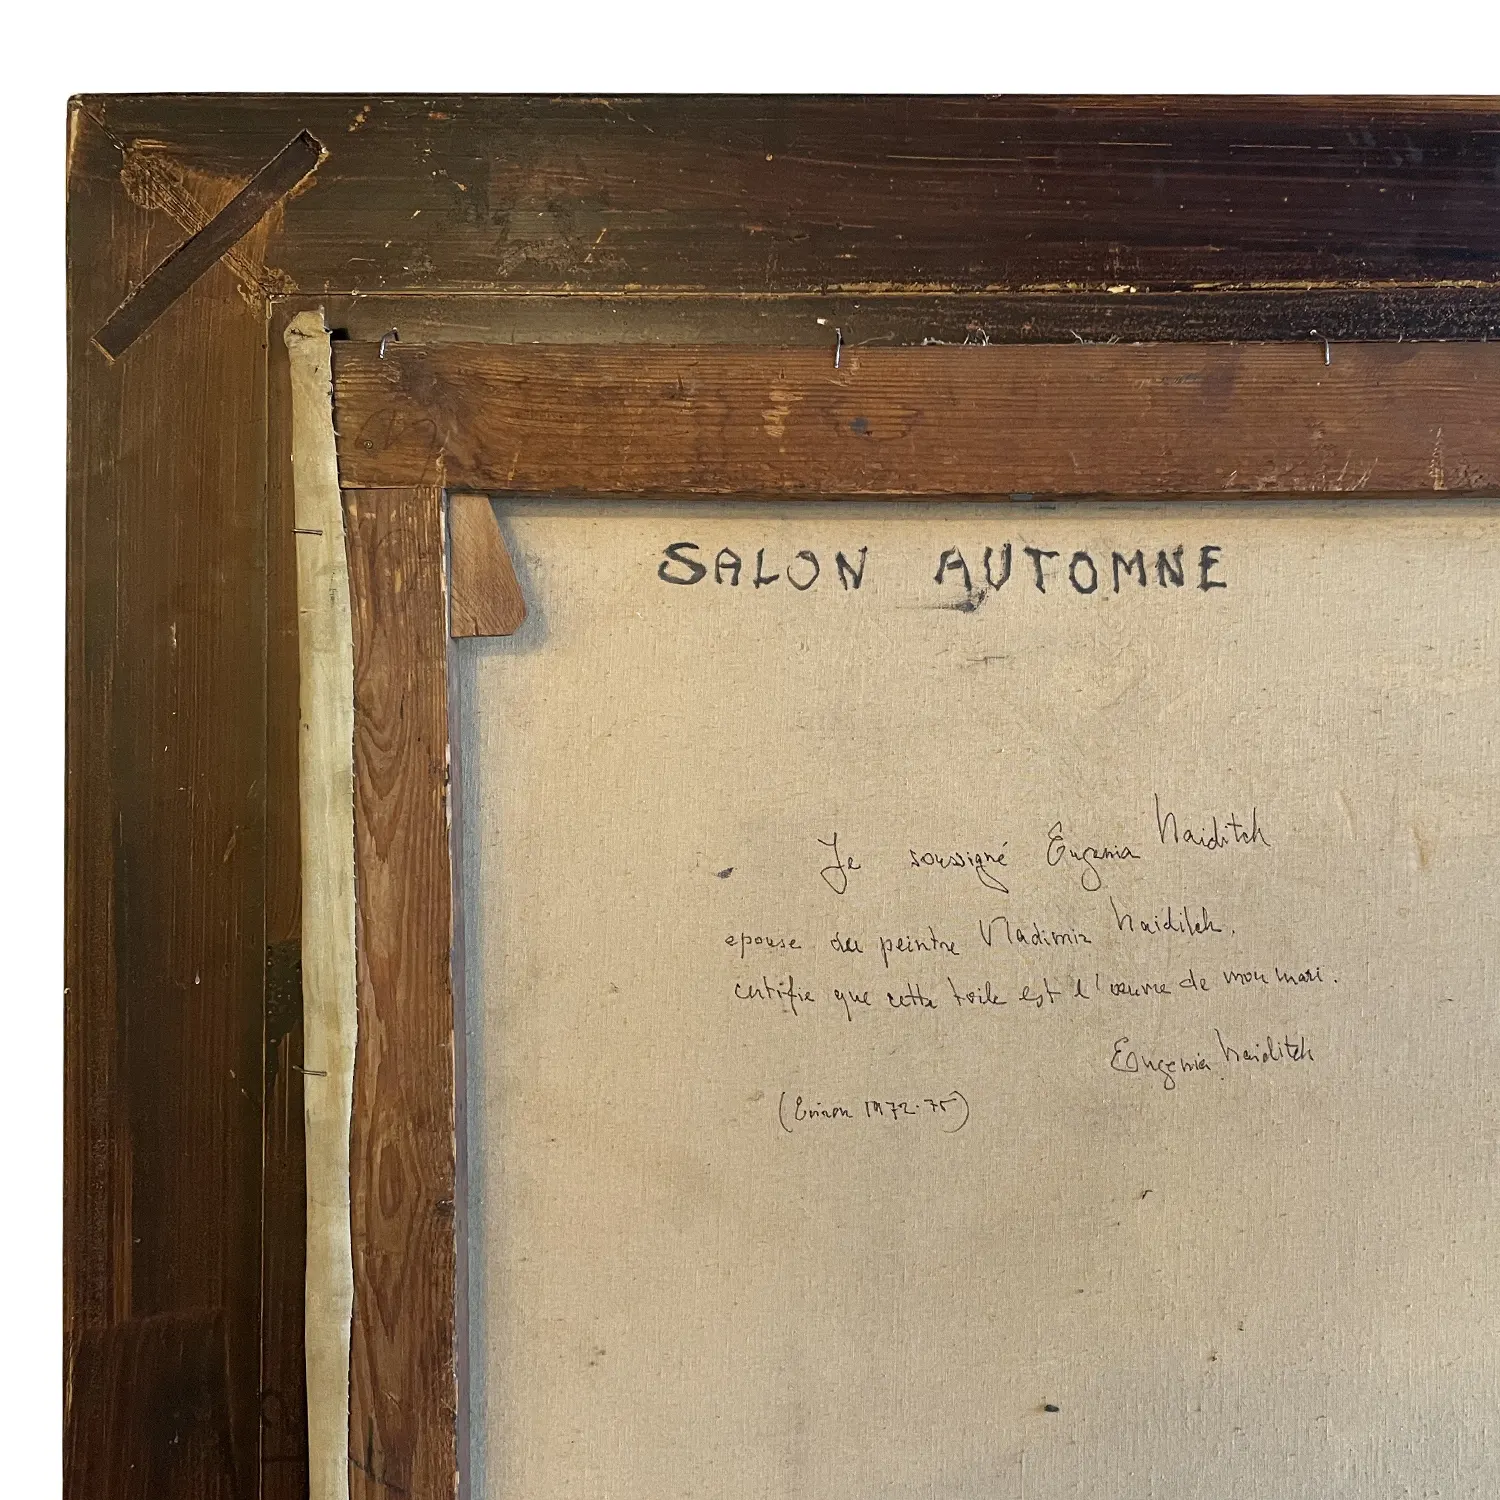 SALON AUTOMNE
Je soussigné Eugenia Naiditch
epouse du peintre Vladimir Naiditch.
certifie que cette toile est l'œuvre de mon mari.
Eugenia Naiditch
(Environ 1972-75)